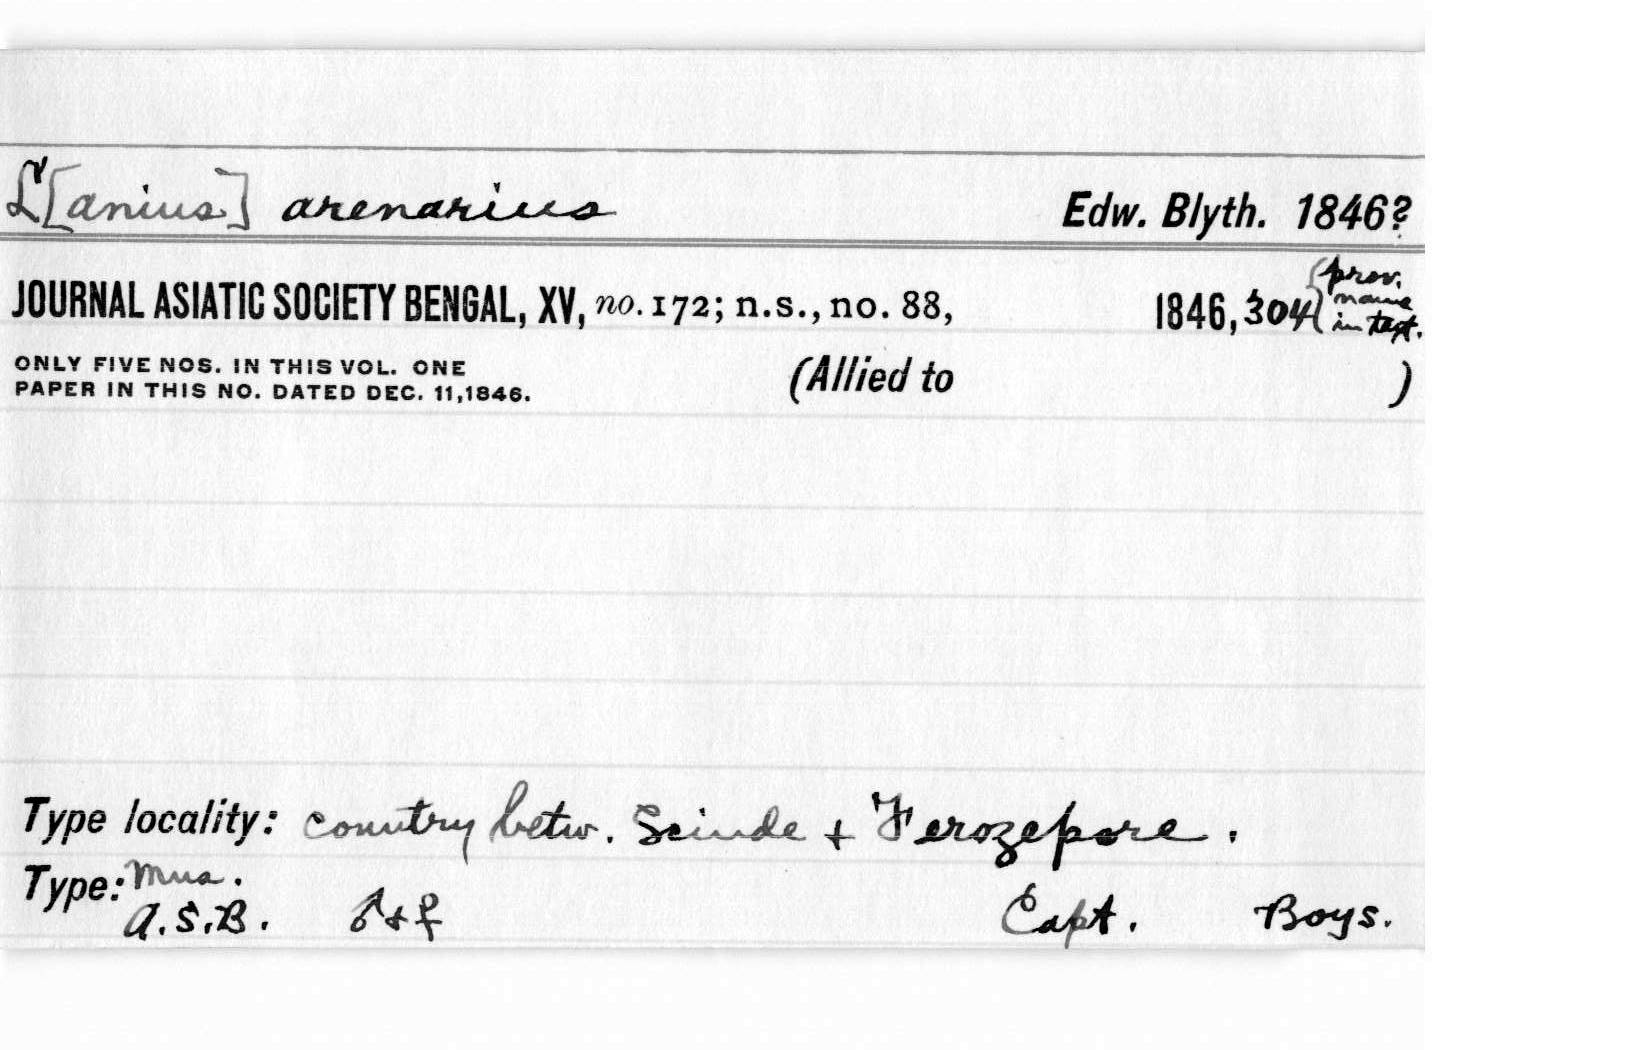 L[anius] arenarius Edw. Blyth. 1846?
JOURNAL ASIATIC SOCIETY BENGAL, XV, no. 172; n.s., no. 88, 1846, 304 (prov. name in text.
ONLY FIVE NOS. IN THIS VOL. ONE
PAPER IN THIS NO. DATED DEC. 11, 1846. (Allied to )
Type locality: country betw. Scinde + Ferozepore.
Type: Mus.
A.S.B. ♂+♀ Capt. Boys.